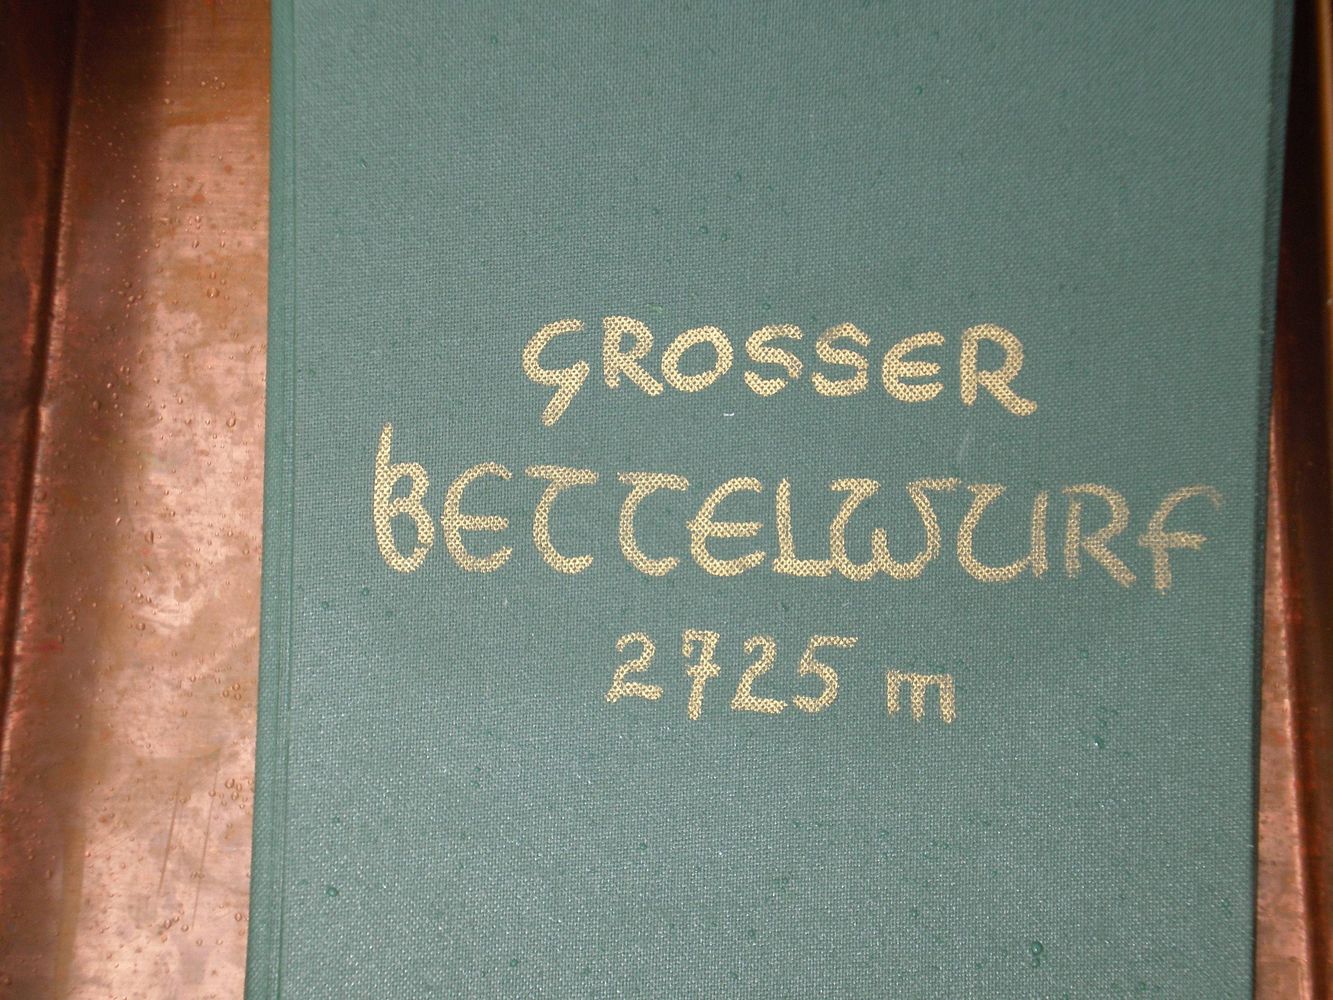 GROSSER
BETTELWURF
2725 m